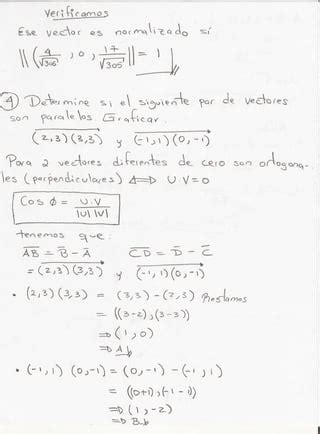 Verificamos
Ese vector es normalizado si
||(4/√305, 0, 17/√305)|| = 1
④ Determine si el siguiente par de vectores
son paralelos Graficar.
(2,3)(3,3) y (-1,1)(0,-1)
Para 2 vectores diferentes de cero son ortogona-
les (perpendiculares) ⟺ U.V=0
Cos φ = U.V / |U||V|
tenemos que:
AB = B - A CD = D - C
= (2,3)(3,3) y (-1,1)(0,-1)
• (2,3)(3,3) = (3,3) - (2,3) Restamos
= ((3-2),(3-3))
⇒ (1,0)
⇒ A
• (-1,1) (0,-1) = (0,-1) - (-1,1)
= ((0+1),(-1-1))
⇒ (1,-2)
⇒ B